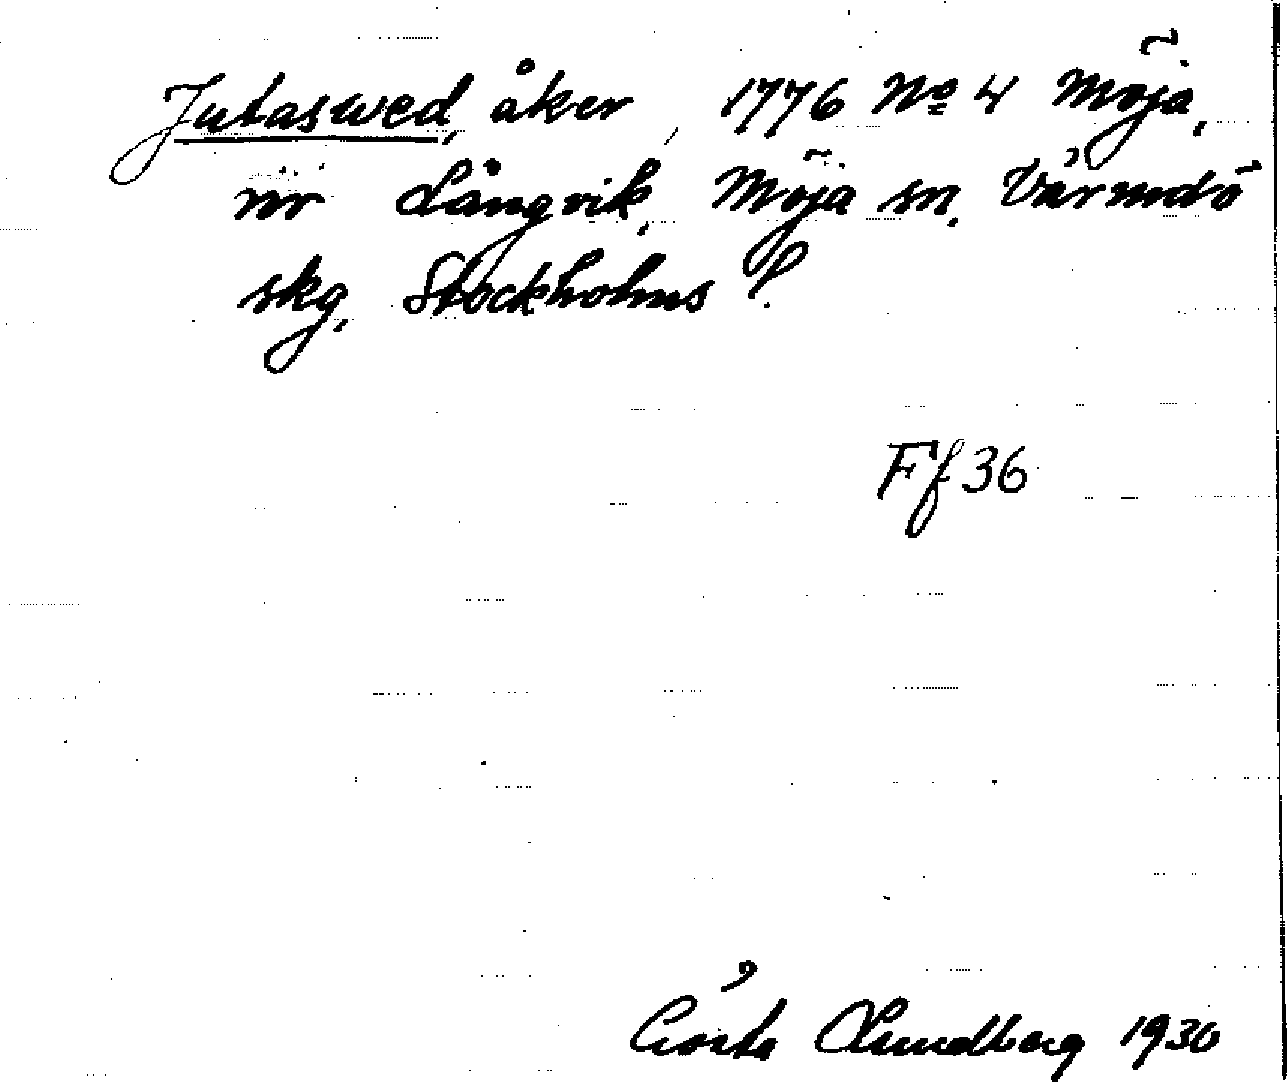 Jutaswed, åker, 1776 No 4 Möja,
nr Långvik, Möja sn, Värmdö
skg, Stockholms l.
Ff 36
Gösta Lundberg 1930